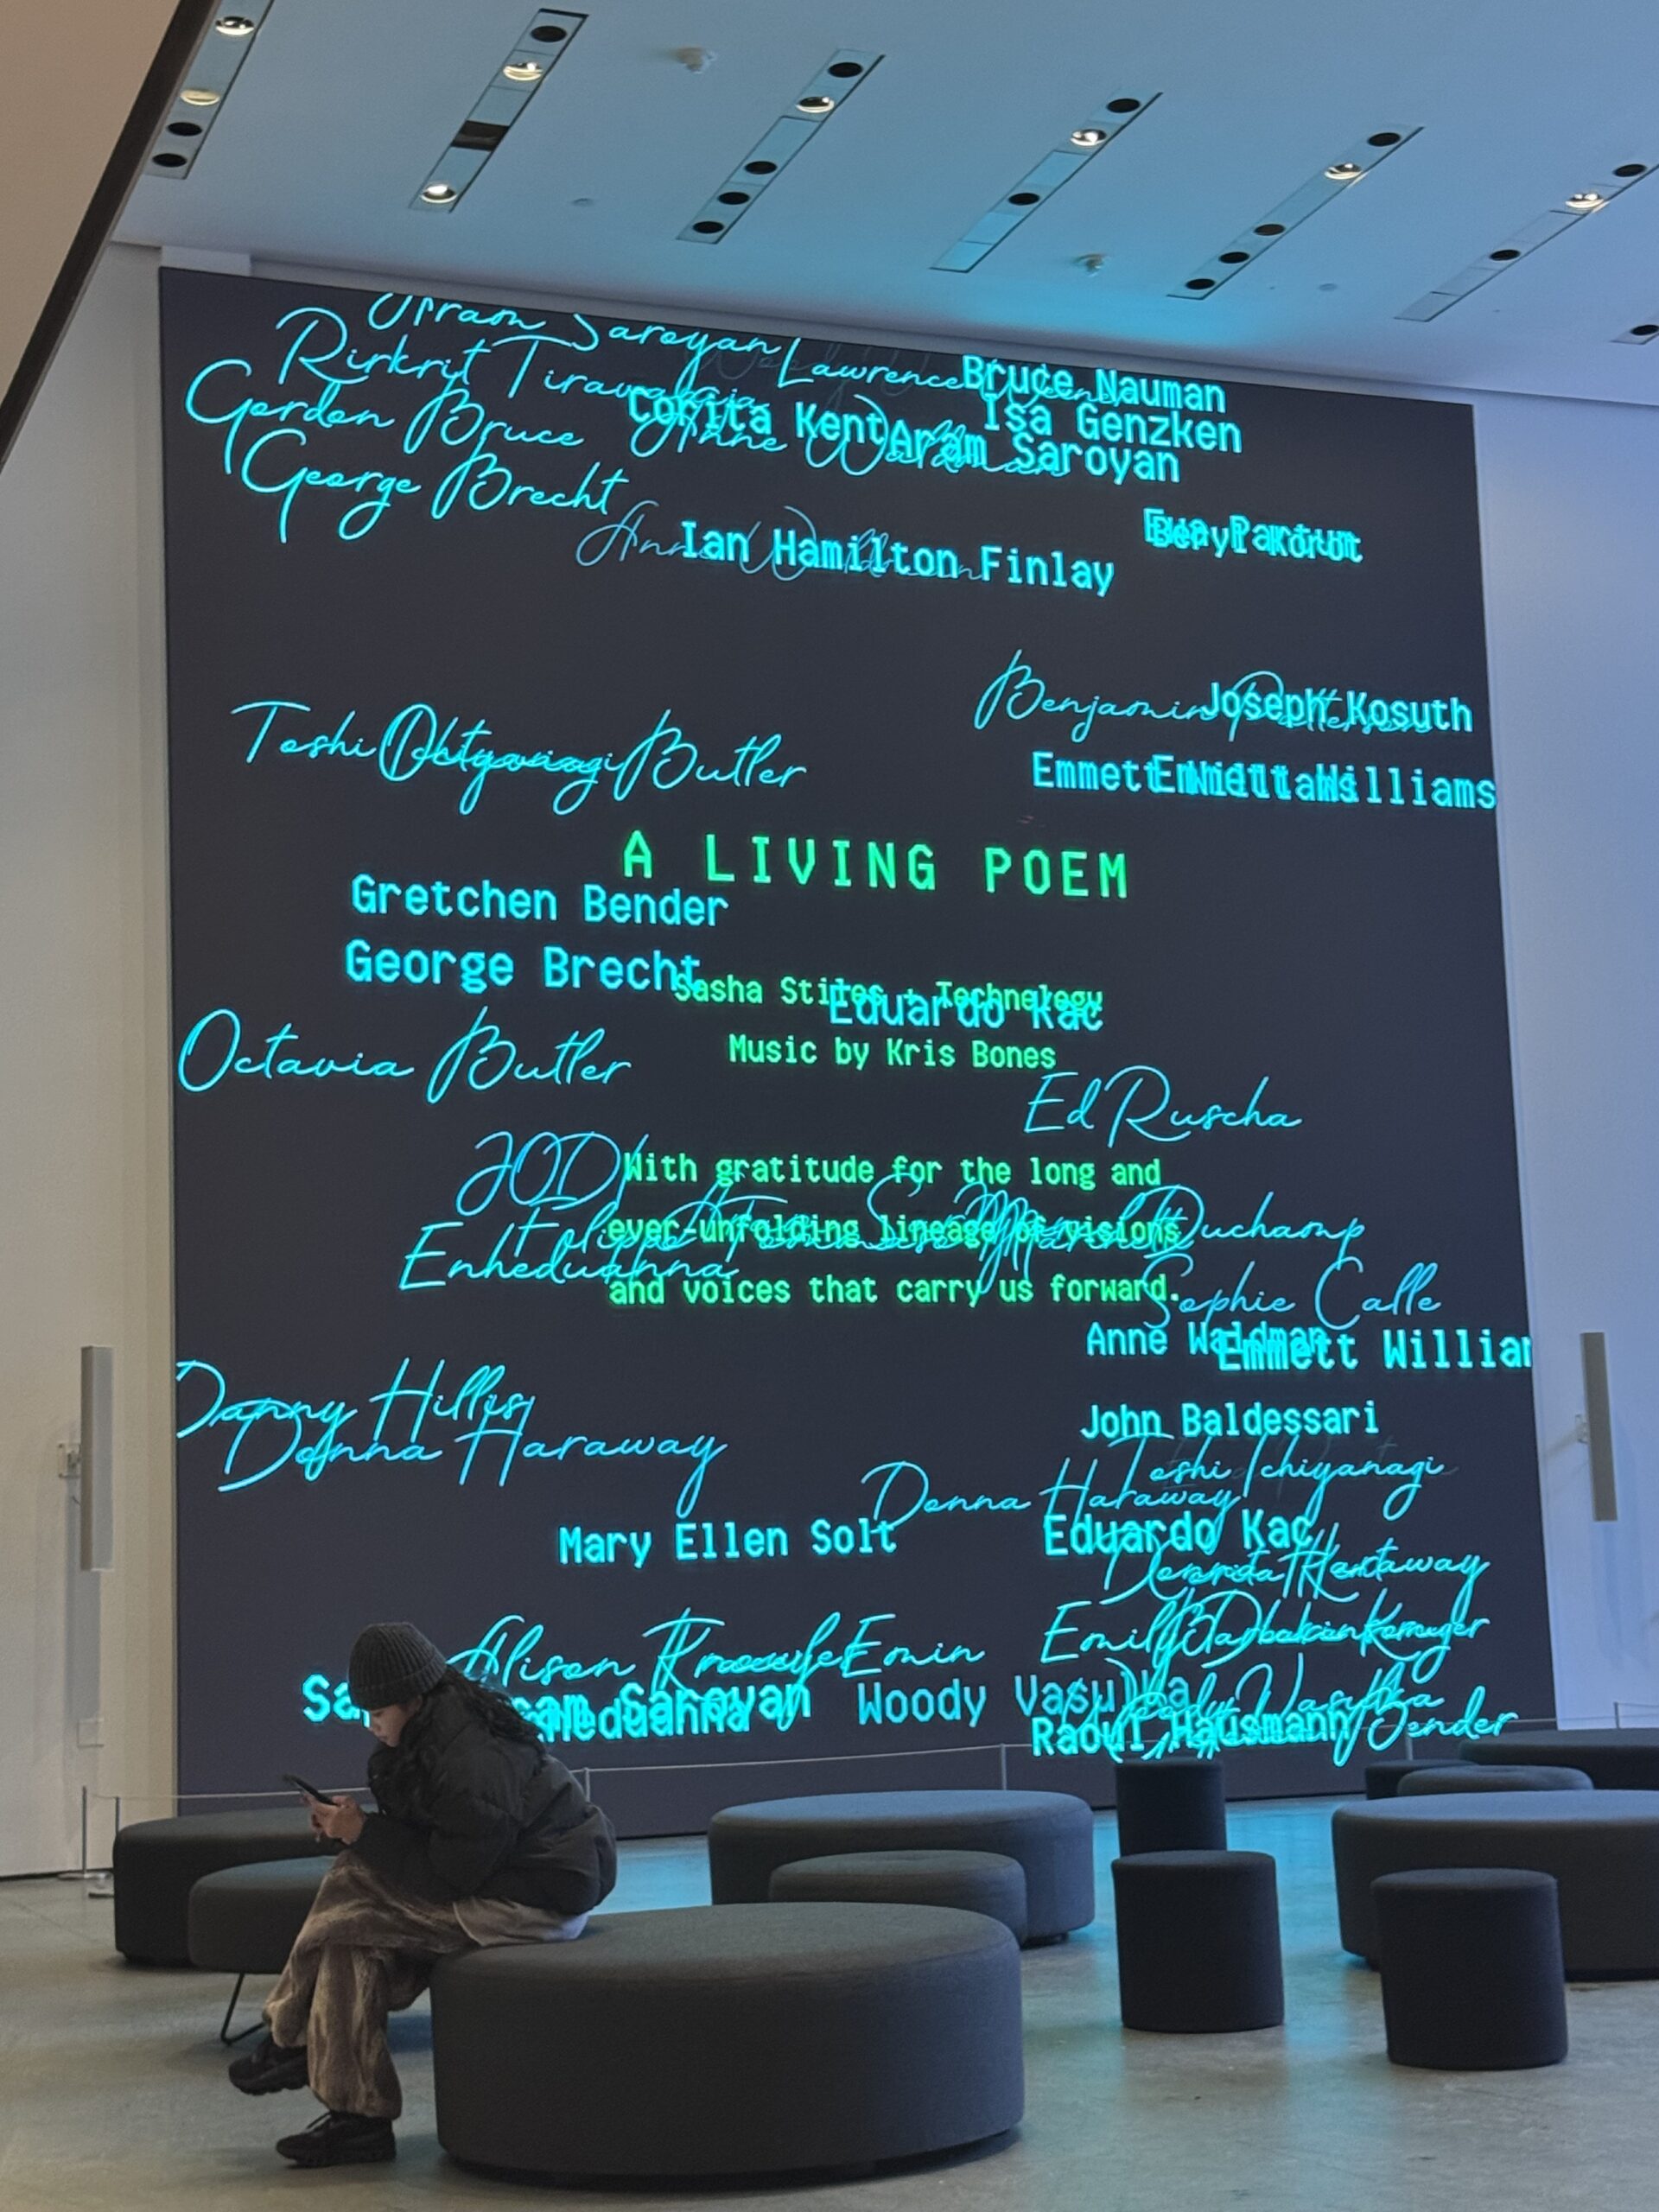 Aram Saroyan
Rirkrit Tiravanija Lawrence
Bruce Nauman
Gordon Bruce
Corita Kent
Isa Genzken
Anne Waldman
Aram Saroyan
George Brecht
Anne Waldman
Ian Hamilton Finlay
Beryl Korot
Benjamin Patterson
Joseph Kosuth
Toshi Ichiyanagi
Butler
Emmett Williams
Emmett Williams
A LIVING POEM
Gretchen Bender
George Brecht
Sasha Stiles + Technology
Eduardo Kac
Music by Kris Bones
Octavia Butler
Ed Ruscha
JODI
With gratitude for the long and
ever-unfolding lineage of visions
Duchamp
Enheduanna
and voices that carry us forward.
Sophie Calle
Anne Waldman
Emmett Willia
Danny Hillis
Donna Haraway
John Baldessari
Toshi Ichiyanagi
Donna Haraway
Mary Ellen Solt
Eduardo Kac
Haraway
Alison Knowles
Emin
Emily
Kruger
Sa
Saroyan
Woody Vasulka
Woody Vasulka
Raoul Hausmann
Bender